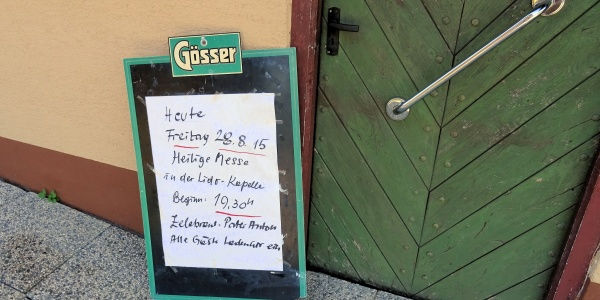 6
Gösser
Heute
Freitag 28.8.15
Heilige Messe
in der Lido-Kapelle
Beginn: 19,30h
Zelebrant. Pater Anton
Alle Gäste